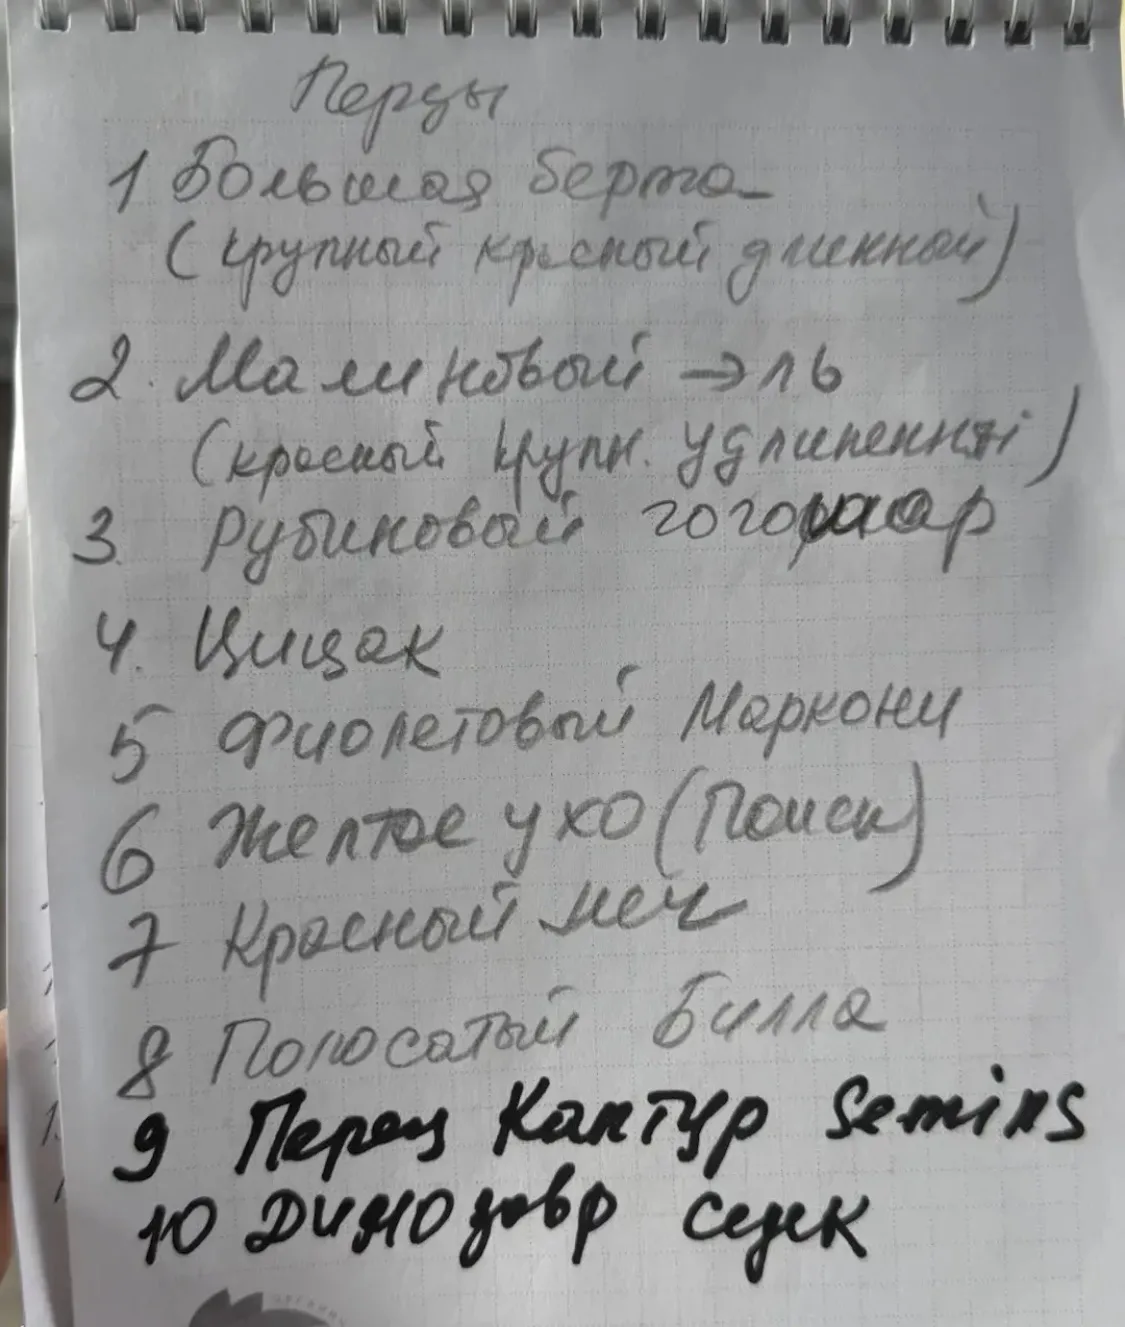 Перцы
1 Большая берта
(крупный красный длинный)
2. Малиновый эль
(красный крупн. удлиненный)
3. Рубиновый гогошар
4. Цицак
5 Фиолетовый Маркони
6 Желтое ухо (Поиск)
7 Красный меч
8 Полосатый Билла
9 Перец Кантур Semins
10 Динозавр седек